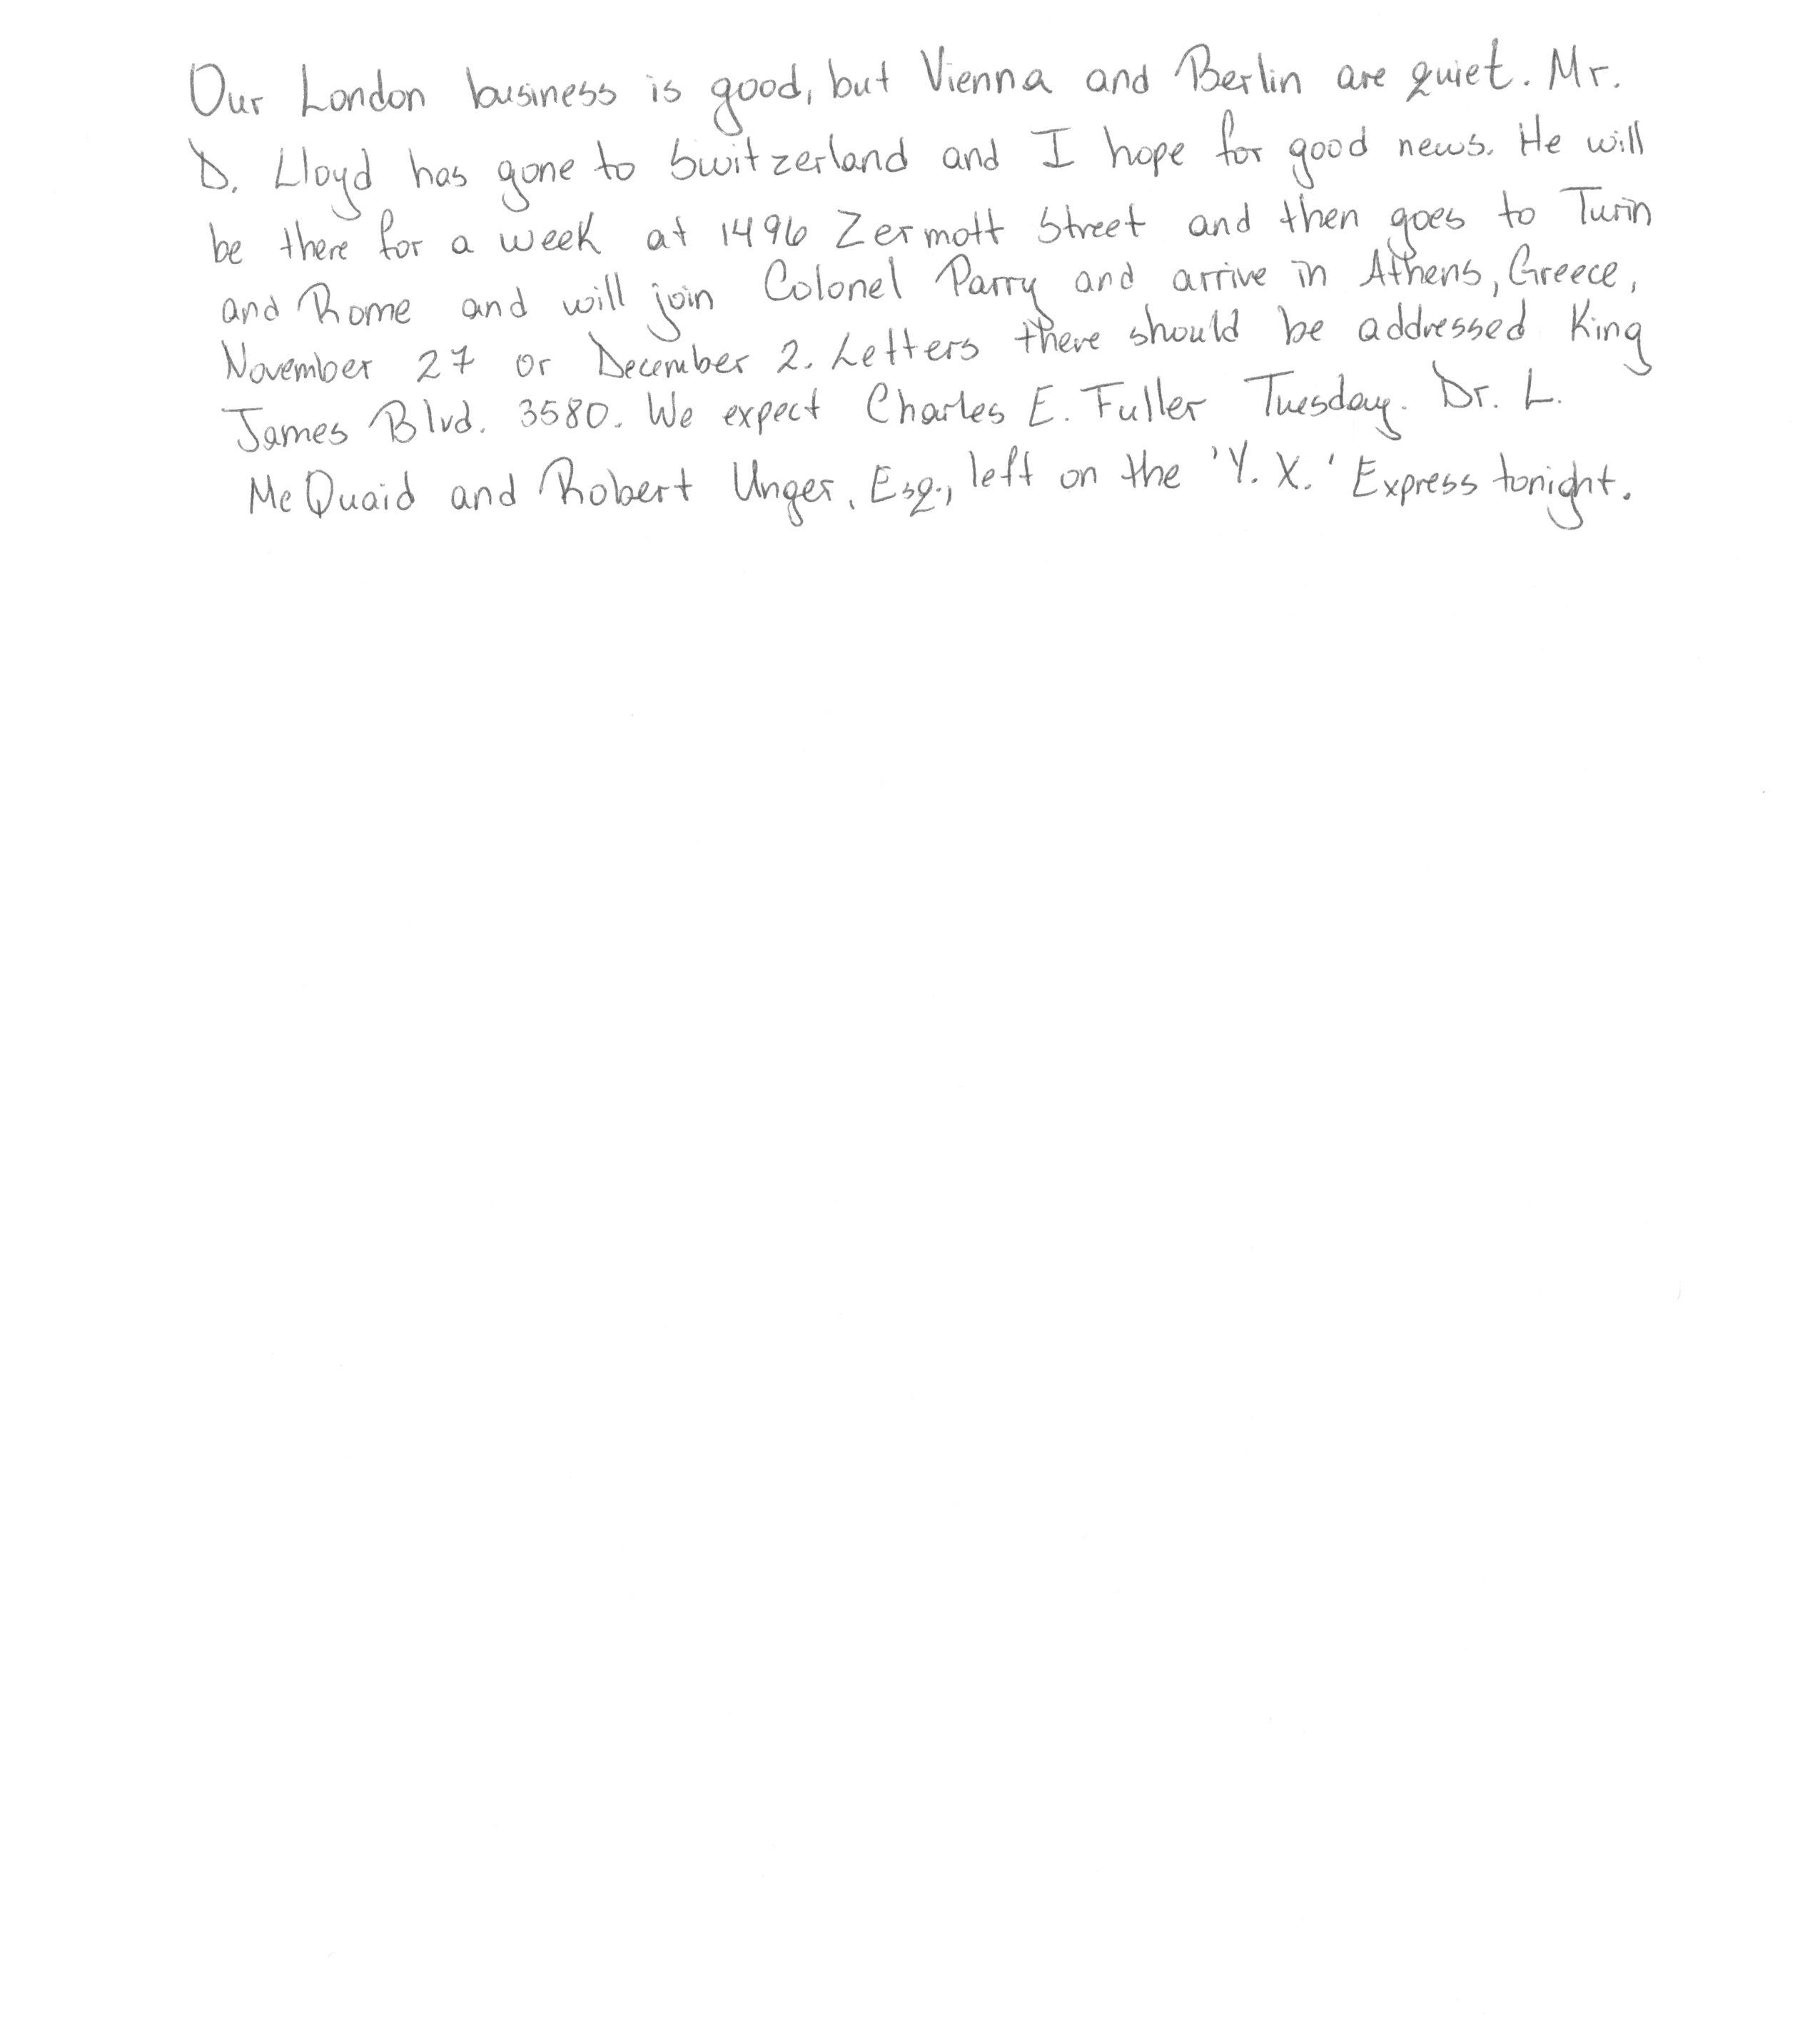 Our London business is good, but Vienna and Berlin are quiet. Mr.
D. Lloyd has gone to Switzerland and I hope for good news. He will
be there for a week at 1496 Zermott Street and then goes to Turin
and Rome and will join Colonel Parry and arrive in Athens, Greece,
November 27 or December 2. Letters there should be addressed King
James Blvd. 3580. We expect Charles E. Fuller Tuesday. Dr. L.
McQuaid and Robert Unger, Esq., left on the 'Y. X.' Express tonight.